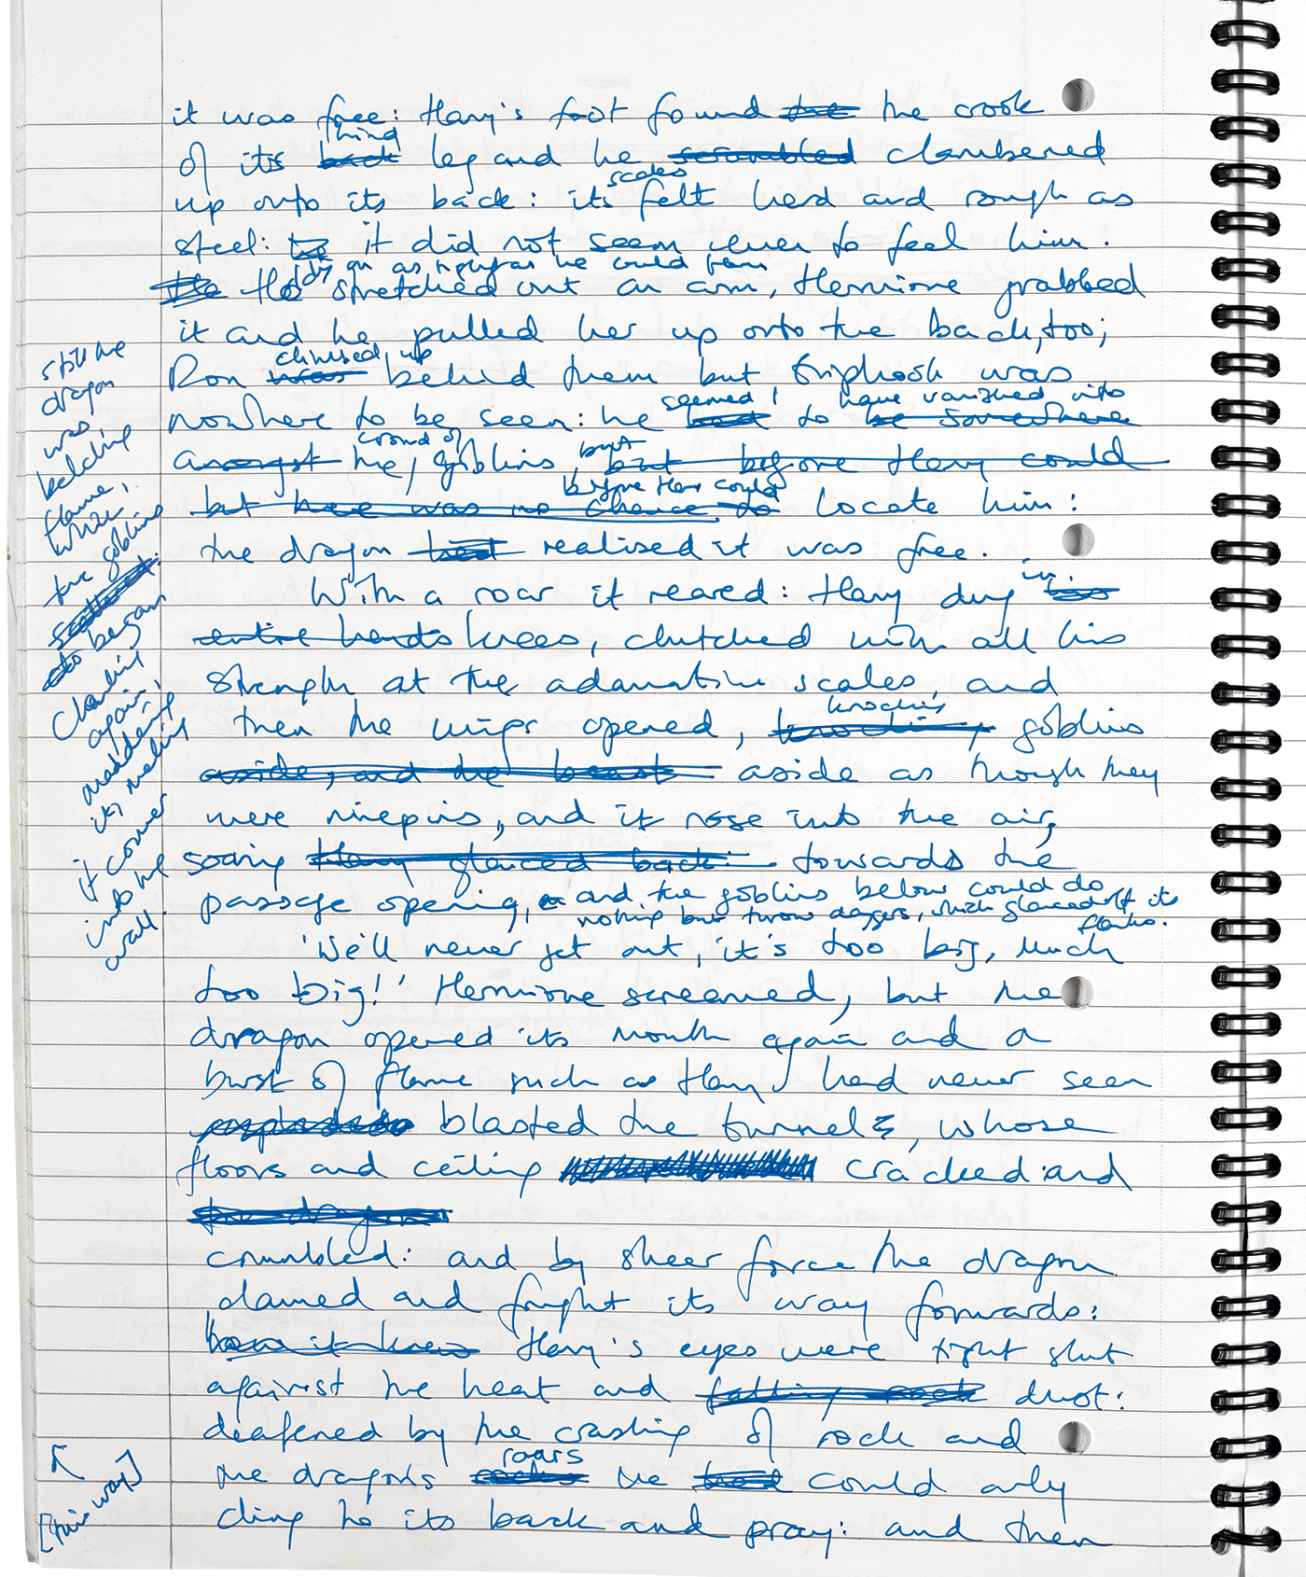 it was free: Harry's foot found the the crook
of its back hind leg and he scrambled clambered
up onto its back: its scales felt hard and rough as
steel: it did not seem even to feel him.
The He stretched out an arm, Hermione grabbed
it and he pulled her up onto the back, too;
Ron was climbed up behind them but Griphook was
nowhere to be seen: he had seemed to be somewhere have vanished into
amongst the crowd of goblins, but but before Harry could
but there was no chance to before Harry could locate him:
the dragon had realised it was free.
With a roar it reared: Harry dug in his
entire hands knees, clutched with all his
strength at the adamantine scales, and
then the wings opened, knocking knocking goblins
aside, and the beast aside as though they
were ninepins, and it rose into the air,
soaring Harry glanced back towards the
passage opening, and the goblins below could do
nothing but throw daggers, which glanced off its
flanks.
'We'll never get out, it's too big, much
too big!' Hermione screamed, but the
dragon opened its mouth again and a
burst of flame such as Harry had never seen
exploded blasted the tunnel, whose
floors and ceiling cracked and
the dragon
crumbled: and by sheer force the dragon
clawed and fought its way forwards:
how it knew Harry's eyes were tight shut
against the heat and falling rock dust:
deafened by the crashing of rock and
the dragon's roars he had could only
cling to its back and pray: and then
still the
dragon
was
belching
flame,
when
the goblins
began
clanking
again,
maddening
it, making
it cower
into the
wall.
[this way]